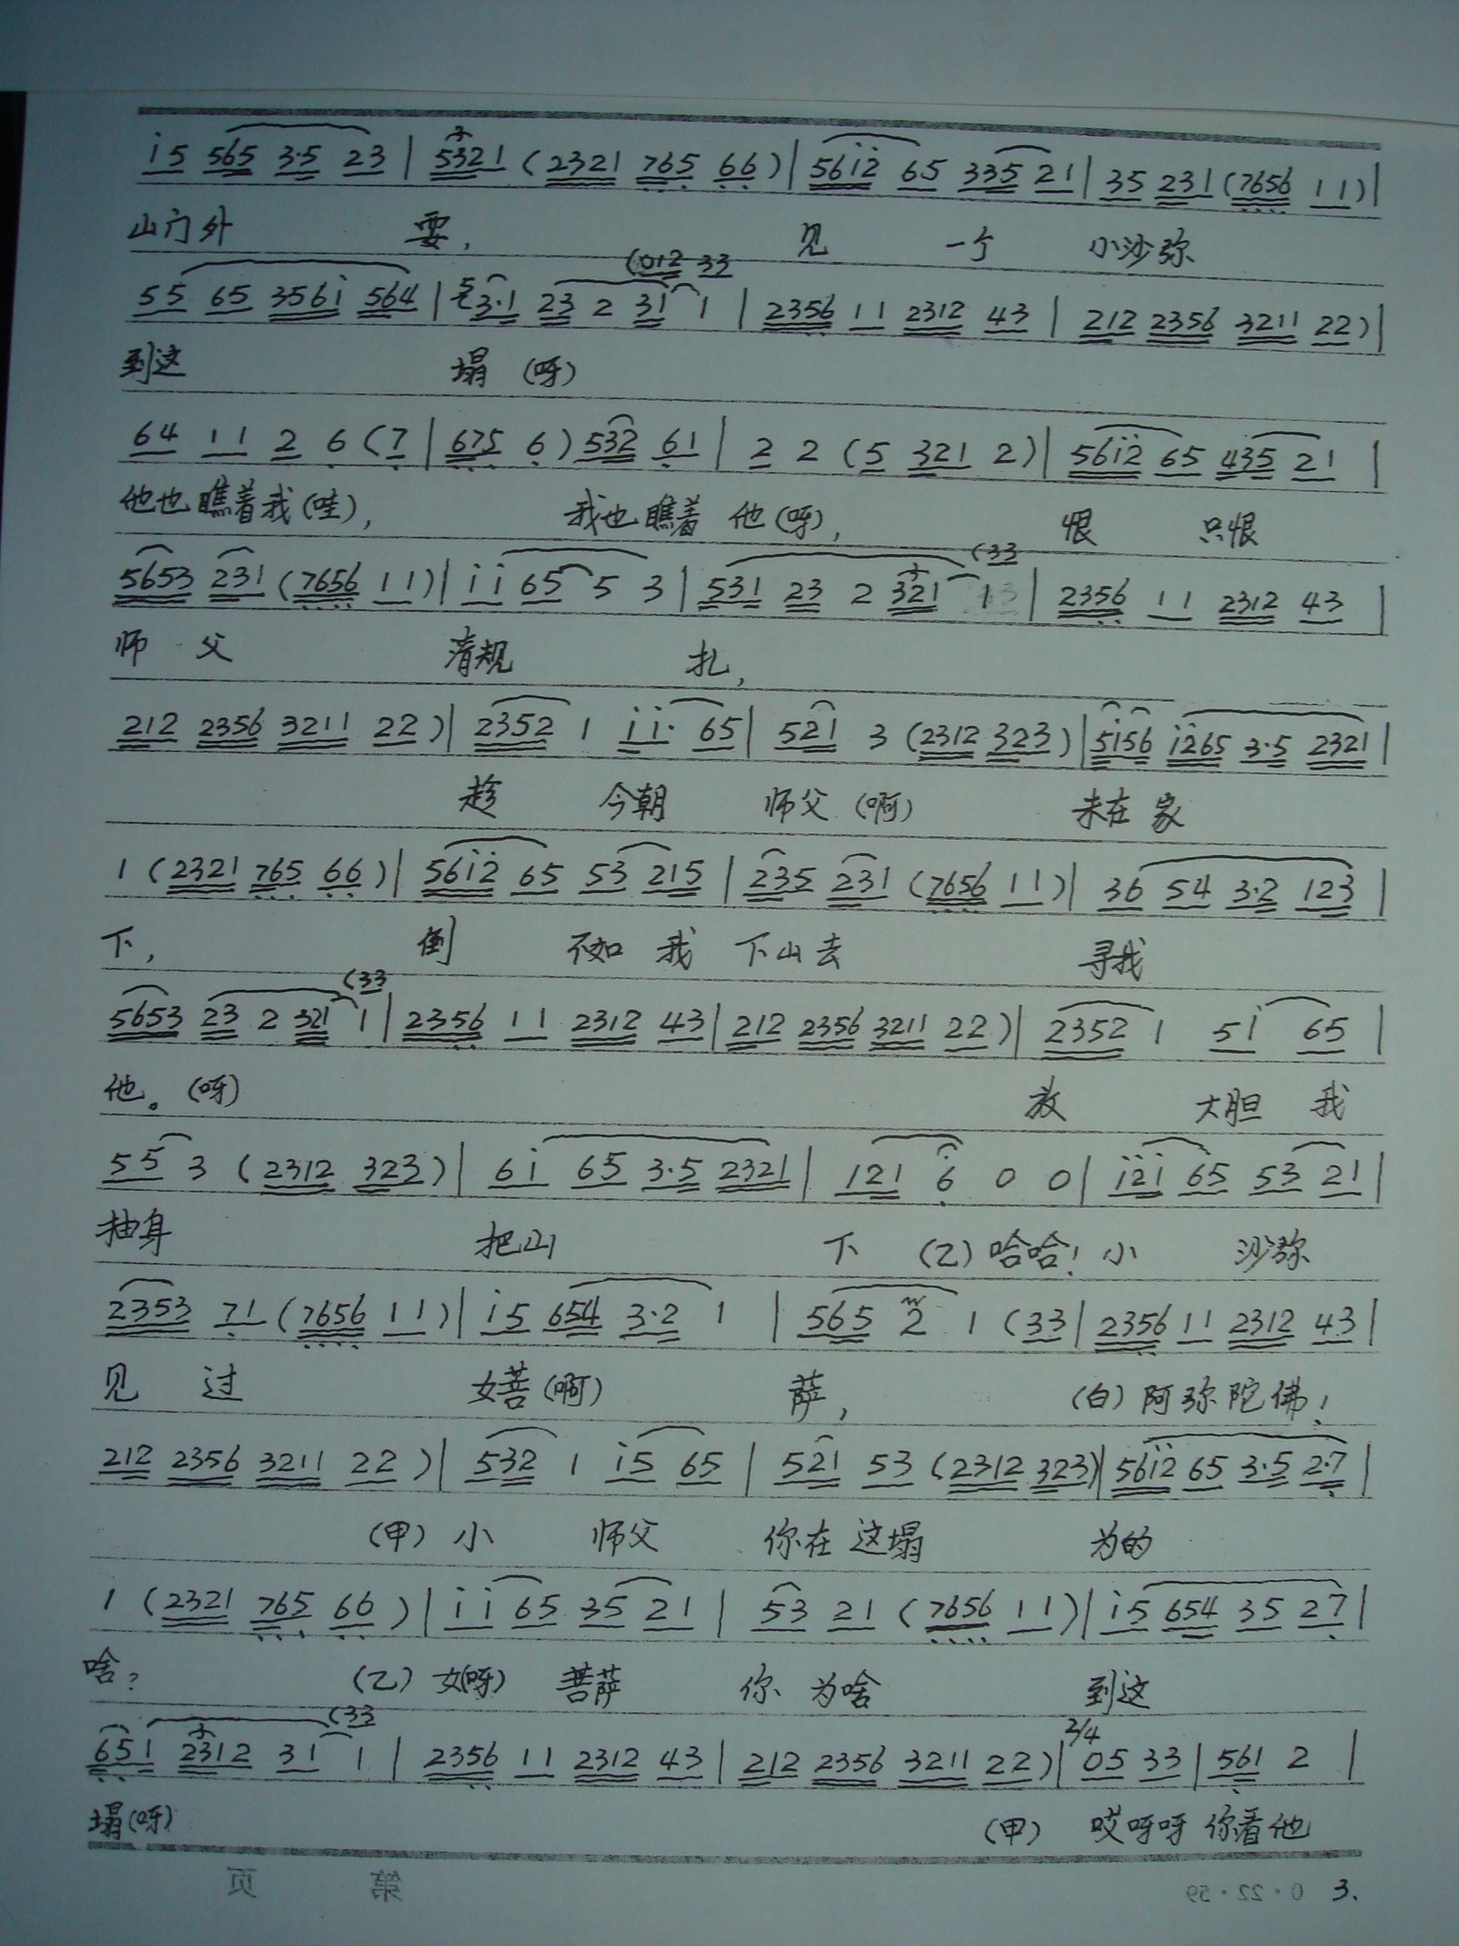 i5 565 3·5 23 | 5321 (2321 765 66) | 56i2 65 335 21 | 35 231 (7656 11) |
山门外 耍, 见 一个 小沙弥
(012 33
55 65 356i 564 | 5 3·1 23 2 31 1 | 2356 11 2312 43 | 212 2356 3211 22) |
到这 塌 (呀)
64 11 2 6 (7 | 675 6) 532 61 | 2 2 (5 321 2) | 56i2 65 435 21 |
他也瞧着我(哇), 我也瞧着 他(呀), 恨 只恨
(33
5653 231 (7656 11) | ii 65 5 3 | 531 23 2 321 1 | 2356 11 2312 43 |
师 父 清规 扎,
212 2356 3211 22) | 2352 1 ii· 65 | 521 3 (2312 323) | 5i56 i265 3·5 2321 |
趁 今朝 师父 (啊) 未在 家
1 (2321 765 66) | 56i2 65 53 215 | 235 231 (7656 11) | 36 54 3·2 123 |
下, 倒 不如 我 下山去 寻我
(33
5653 23 2 321 1 | 2356 11 2312 43 | 212 2356 3211 22) | 2352 1 5i 65 |
他。(呀) 放 大胆 我
55 3 (2312 323) | 6i 65 3·5 2321 | 121 6 0 0 | i2i 65 53 21 |
抽身 把山 下 (乙) 哈哈! 小 沙弥
2353 71 (7656 11) | i5 654 3·2 1 | 565 2 1 (33 | 2356 11 2312 43 |
见 过 女菩(啊) 萨, (白) 阿弥陀佛!
212 2356 3211 22) | 532 1 i5 65 | 521 53 (2312 323) | 56i2 65 3·5 2·7 |
(甲) 小 师父 你在 这塌 为的
1 (2321 765 66) | ii 65 35 21 | 53 21 (7656 11) | i5 654 35 27 |
啥? (乙) 女(呀) 菩萨 你 为啥 到这
(33
651 2312 31 1 | 2356 11 2312 43 | 212 2356 3211 22) | 2/4 05 33 | 561 2 |
塌(呀) (甲) 哎呀呀 你看他
页 第 0·22·59 3.